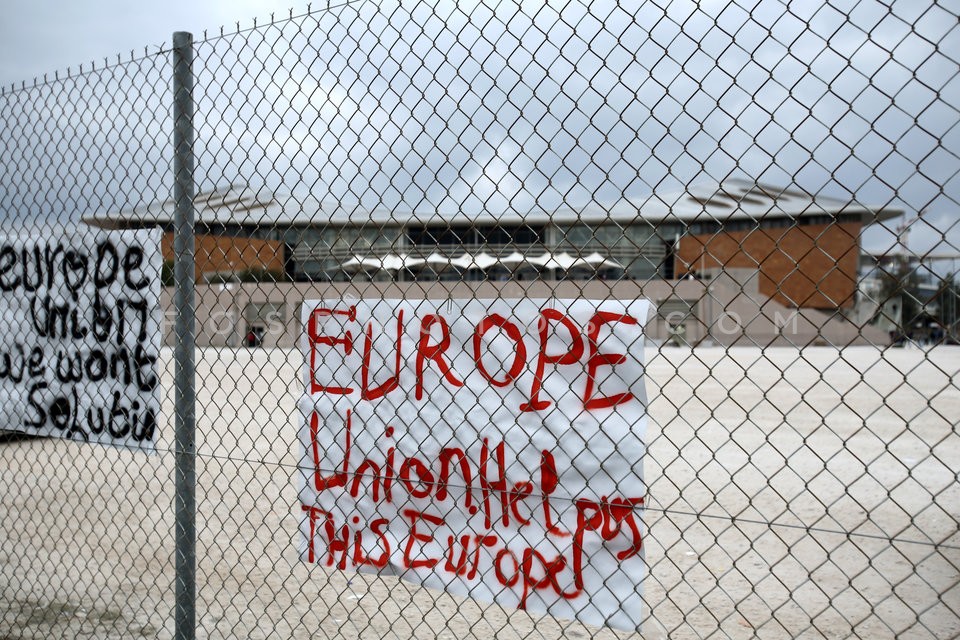 europe
union
we wont
Solutio
EUROPE
Union HeLp us
This Europe
FOSPHOTOS.COM